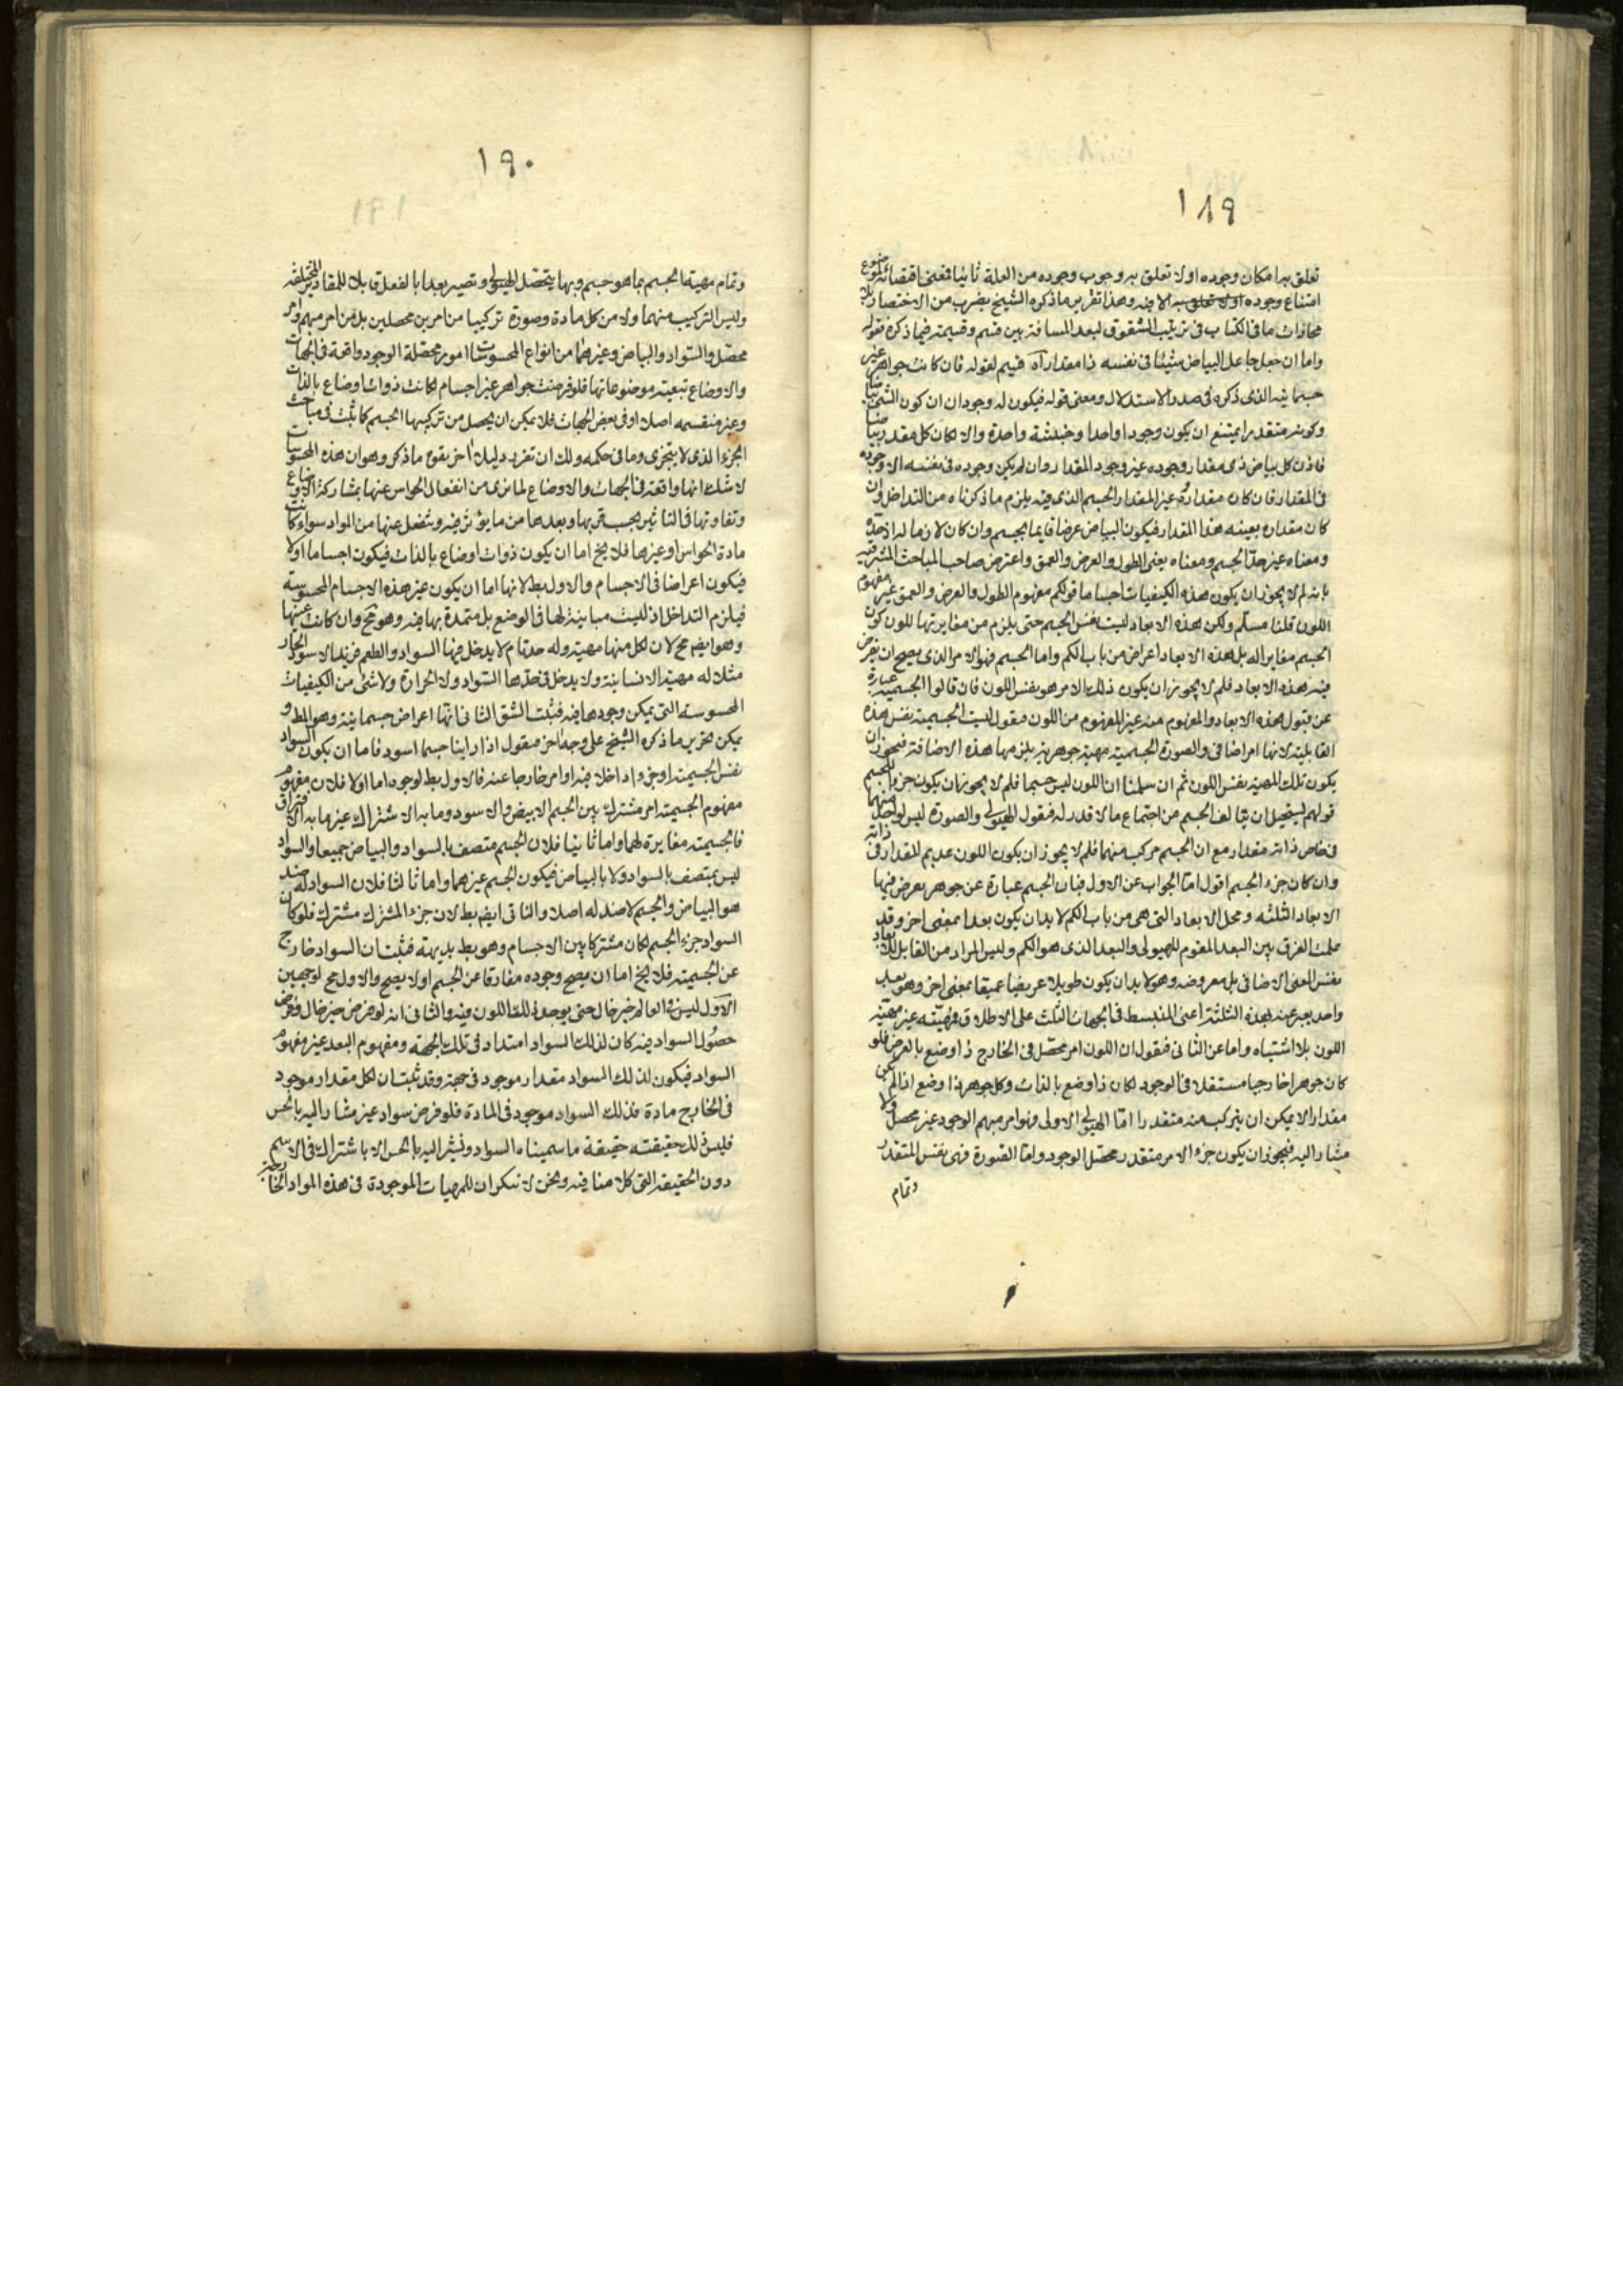 ١٨٩
تعلق به امكان وجوده اولا تعلق به وجوب وجوده من العلة ثانيا فمعنى اقتضائه لموضوع
امتناع وجوده الا فيه وهذا تقرير ما ذكره الشيخ بضرب من الاختصار بلا
محاذات ما فى الكتاب فى ترتيب الشقوق لبعد المسافة بين قسم وقسيمه فيما ذكره فقوله
واما ان جعل جاعل البياض شيئا فى نفسه ذا مقدار اه قسيم لقوله فان كانت جواهر غير
جسمانية الذى ذكره فى صدر الاستدلال ومعنى قوله فيكون له وجودان ان كون الشئ بياضا
وكونه متقدرا يمتنع ان يكون وجودا واحدا وحيثية واحدة والا لكان كل مقدر بياضا
فاذن كل بياض ذى مقدار وجوده غير وجود المقدار وان لم يكن وجوده فى نفسه الا وجوده
فى المقدار فان كان مقداره غير المقدار الجسم الذى فيه يلزم ما ذكرناه من التداخل وان
كان مقداره بعينه هذا المقدار فيكون البياض عرضا قايما بجسم وان كان لازما له اذ حده
ومعناه غير حد الجسم ومعناه يعنى الطول والعرض والعمق واعترض صاحب المباحث المشرقيه
بانه لم لا يجوز ان يكون هذه الكيفيات اجساما قولكم مفهوم الطول والعرض والعمق غير مفهوم
اللون قلنا مسلم ولكن هذه الابعاد ليست نفس الجسم حتى يلزم من مغايرتها للون كون
الجسم مغايرا له بل هذه الابعاد اعراض من باب الكم واما الجسم فهو الامر الذى يصح ان يفرض
فيه هذه الابعاد فلم لا يجوز ان يكون ذلك الامر هو نفس اللون فان قالوا الجسمية عبارة
عن قبول هذه الابعاد والمفهوم منه غير المفهوم من اللون فنقول ليست الجسمية نفس هذه
القابلية لانها امر اضافى والصورة الجسمية مهية جوهرية يلزمها هذه الاضافة فيجوز ان
يكون تلك المهية نفس اللون ثم ان سلمنا ان اللون ليس جسما فلم لا يجوز ان يكون جزءا للجسم
قولهم يستحيل ان يتالف الجسم من اجتماع مالا قدر له فنقول الهيولى والصورة ليس لواحد منهما
فى خاص ذاته مقدار مع ان الجسم مركب منهما فلم لا يجوز ان يكون اللون عديم المقدار فى ذاته
وان كان جزء الجسم اقول اما الجواب عن الاول فبان الجسم عبارة عن جوهر يعرض فيها
الابعاد الثلثه ومحل الابعاد التى هى من باب الكم لا بد ان يكون بعدا بمعنى اخر وقد
علمت الفرق بين البعد المقوم للهيولى والبعد الذى هو الكم وليس المراد من القابل للابعاد
نفس المعنى الاضافى بل معروضه وهو لا بد ان يكون طويلا عريضا عميقا بمعنى اخر وهو بعد
واحد يعبر عنه بهذه الثلثة اعنى المنبسط فى الجهات الثلث على الاطلاق فمهيته غير مهية
اللون بلا اشتباه واما عن الثانى فنقول ان اللون امر محصل فى الخارج ذا وضع بالعرض فلو
كان جوهرا خارجيا مستقلا فى الوجود لكان ذا وضع بالذات وكل جوهر ذا وضع اذا لم يكن
مقدارا لا يمكن ان يتركب منه متقدرا اما الهيولى الاولى فهو امر مبهم الوجود غير محصل ولا
مشار اليه فيجوز ان يكون جزء الامر متقدر محصل الوجود واما الصورة فهى نفس المتقدر
وتمام
١٩٠
وتمام مهية الجسم بما هو جسم وبها يتحصل الهيولى وتصير بعدا بالفعل قابلا للمقادير المختلفه
وليس التركيب منهما ولا من كل مادة وصورة تركيبا من امرين محصلين بل من امر مبهم وامر
محصل والسواد والبياض وغيرهما من انواع المحسوسات امور محصلة الوجود واقعة فى الجهات
والاوضاع تبعيته موضوعاتها فلو فرضت جواهر غير اجسام لكانت ذوات اوضاع بالذات
وغير منقسمه اصلا او فى بعض الجهات فلا يمكن ان يحصل من تركيبها الجسم كما ثبت فى مباحث
الجزء الذى لا يتجزى وما فى حكمه ولك ان تقرر دليلا اخر بقوه ما ذكر وهو ان هذه المحسوسات
لا شك انها واقعة فى الجهات والاوضاع لما نرى من انفعال الحواس عنها بمشاركة الاوضاع
وتفاوتها فى التاثير بحسب قربها وبعدها من ما يؤثر فيه وتنفعل عنها من المواد سواء كانت
مادة الحواس او غيرها فلا يخ اما ان يكون ذوات اوضاع بالذات فيكون اجساما اولا
فيكون اعراضا فى الاجسام والاول بط لانها اما ان يكون غير هذه الاجسام المحسوسة
فيلزم التداخل اذ ليست مباينة لها فى الوضع بل متمددة بها فيه وهو مح وان كانت عينها
وهو ايضم مح لان لكل منها مهية وله حد تام لا يدخل فيها السواد والطعم فزيد الاسود الحار
مثلا له مهية الانسانية ولا يدخل فى حدها السواد ولا الحرارة ولا شئ من الكيفيات
المحسوسه التى يمكن وجودها فيه فثبت الشق الثانى انها اعراض جسمانية وهو المط و
يمكن تحرير ما ذكره الشيخ على وجه اخر فنقول اذا راينا جسما اسود فاما ان يكون السواد
نفس الجسمية او جزءا داخلا فيه او امر خارجا عنه فالاول بط لوجوه اما اولا فلان مفهوم
مفهوم الجسمية امر مشترك بين الجسم الابيض والاسود وما به الاشتراك غير ما به الافتراق
فالجسمية مغايرة لهما واما ثانيا فلان الجسم متصف بالسواد والبياض جميعا والسواد
ليس بمتصف بالسواد ولا بالبياض فيكون الجسم غيرهما واما ثالثا فلان السواد له ضد
هو البياض والجسم لا ضد له اصلا والثانى ايضم بط لان جزء المشترك مشترك فلو كان
السواد جزء الجسم لكان مشتركا بين الاجسام وهو بط بديهة فثبت ان السواد خارج
عن الجسمية فلا يخ اما ان يصح وجوده مفارقا عن الجسم اولا يصح والاول مح لوجهين
الاول ليس فى العالم خير خال حتى يوجد ذلك اللون فيه والثانى انه لو فرض حيز خال وفرض
حصول السواد فيه كان لذلك السواد امتداد فى تلك الجهة ومفهوم البعد غير مفهوم
السواد فيكون لذلك السواد مقدار موجود فى جهة وقد ثبت ان لكل مقدار موجود
فى الخارج مادة فذلك السواد موجود فى المادة فلو فرض سواد غير مشار اليه بالحس
فليس ذلك حقيقته حقيقة ما سميناه السواد ونشير اليه بالحس الا باشتراك فى الاسم
دون الحقيقة التى كلامنا فيه ونحن لا ننكر ان للمهيات الموجودة فى هذه المواد الخارجية